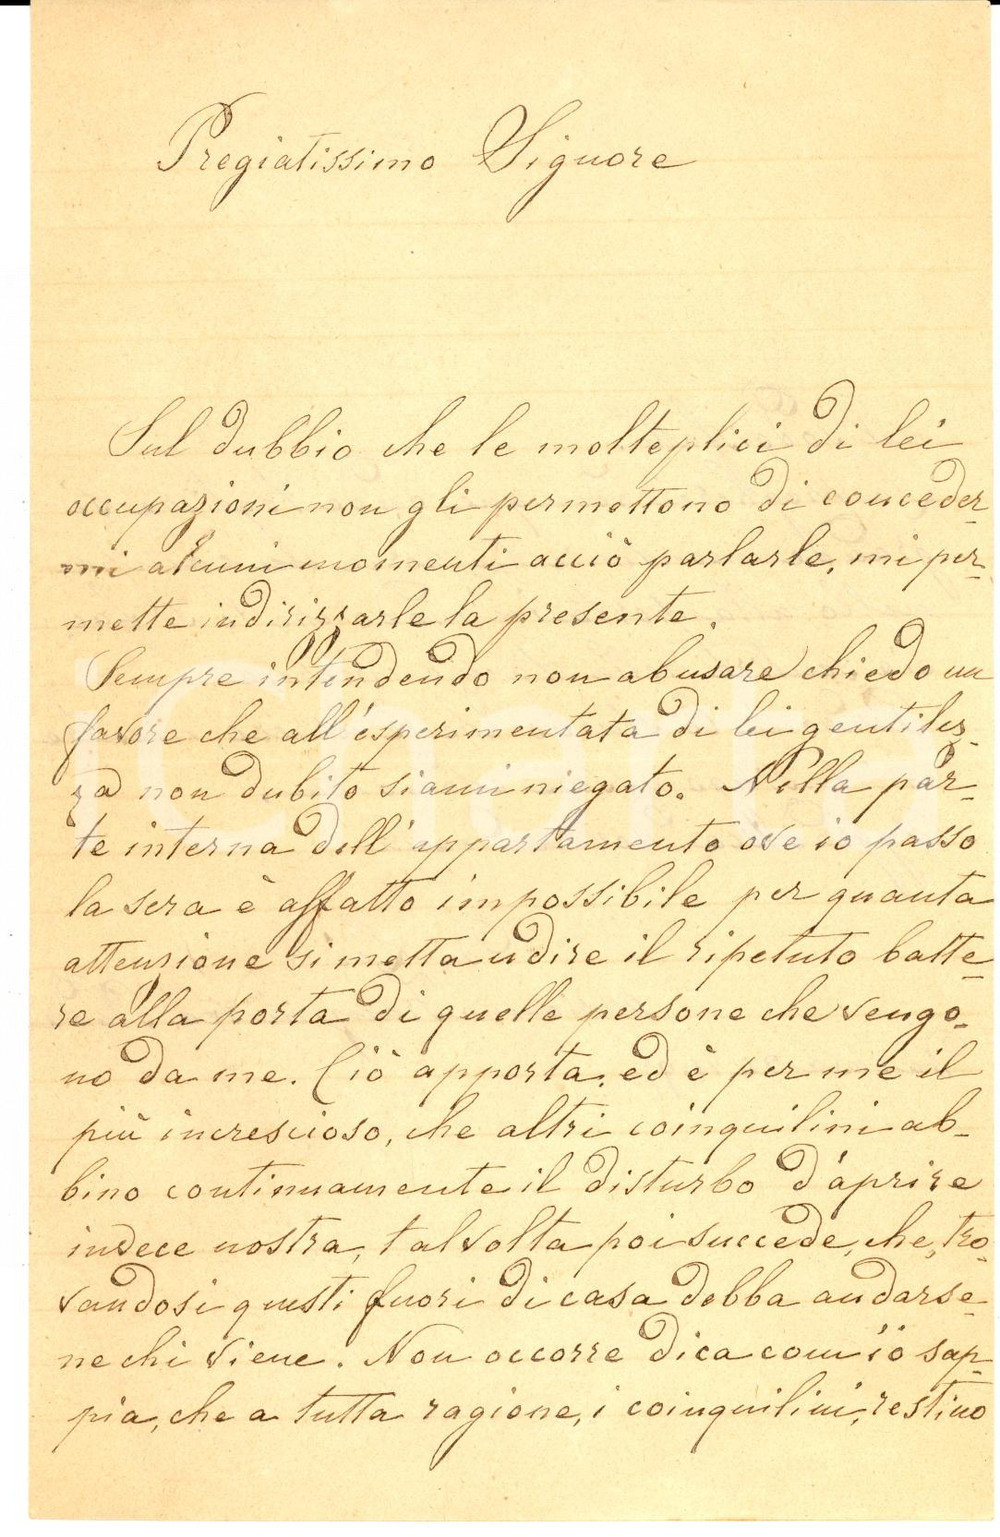 Pregiatissimo Signore
Sul dubbio che le molteplici di lei
occupazioni non gli permettono di conceder-
mi alcuni momenti acciò parlarle, mi per-
mette indirizzarle la presente.
Sempre intendendo non abusare chiedo un
favore che all'esperimentata di lei gentilez-
za non dubito siami niegato. Nella par-
te interna dell'appartamento ove io passo
la sera è affatto impossibile per quanta
attenzione si metta udire il ripetuto batte-
re alla porta di quelle persone che vengo-
no da me. Ciò apporta, ed è per me il
più increscioso, che altri coinquilini ab-
bino continuamente il disturbo d'aprire
invece nostra, talvolta poi succede, che, tro-
vandosi questi fuori di casa debba andarse-
ne chi viene. Non occorre dica com'io sap-
pia, che a tutta ragione, i coinquilini, restino